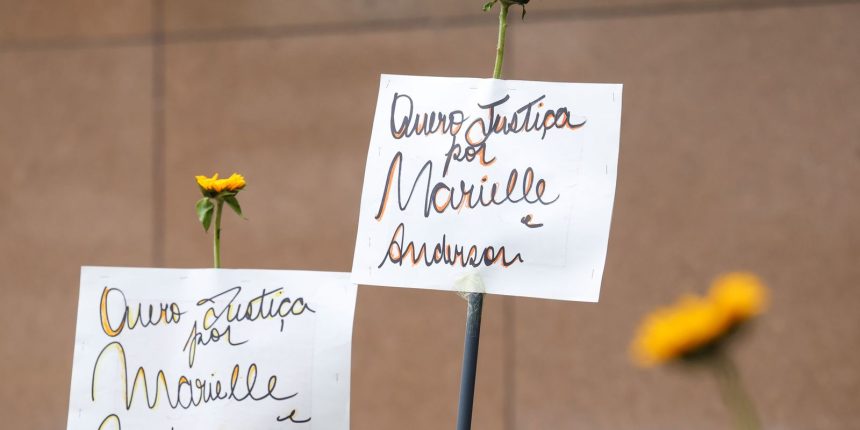 Quero Justiça
por
Marielle
e
Anderson
Quero Justiça
por
Marielle
e